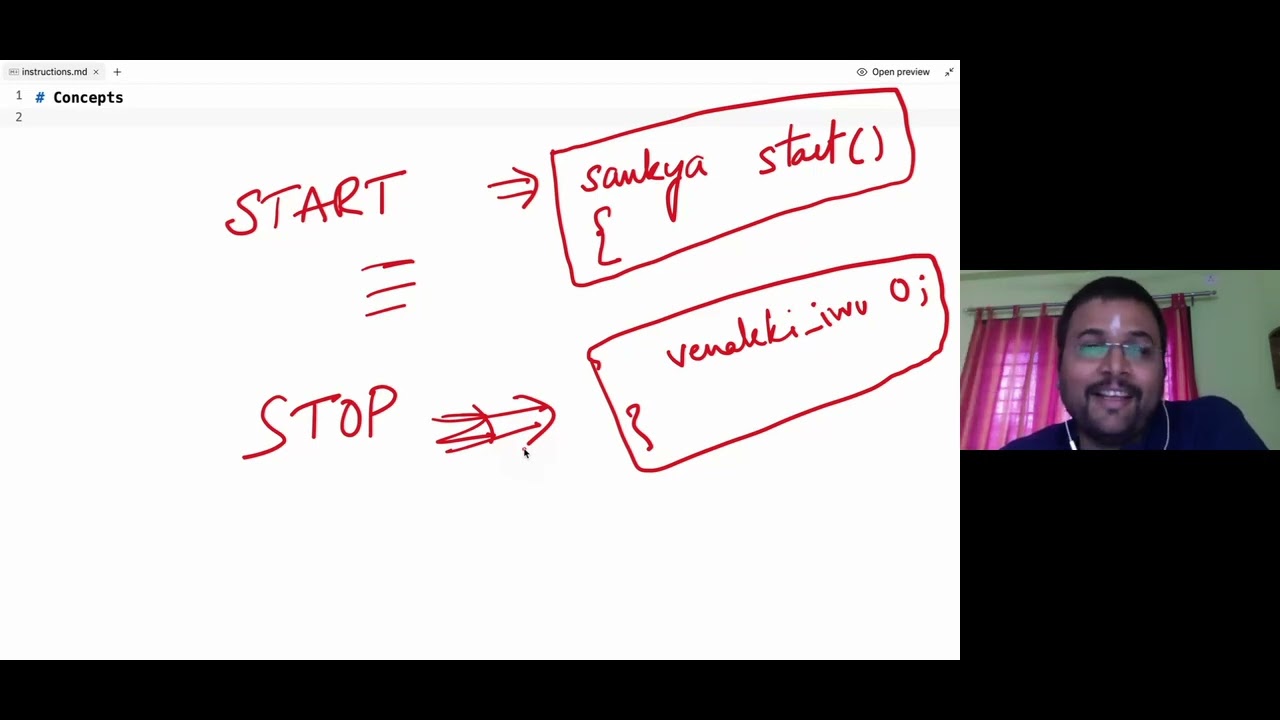 instructions.md
Open preview
1 # Concepts
2
START ⇒ sankya start()
{
STOP ⇒ venakki_ivvu 0;
}